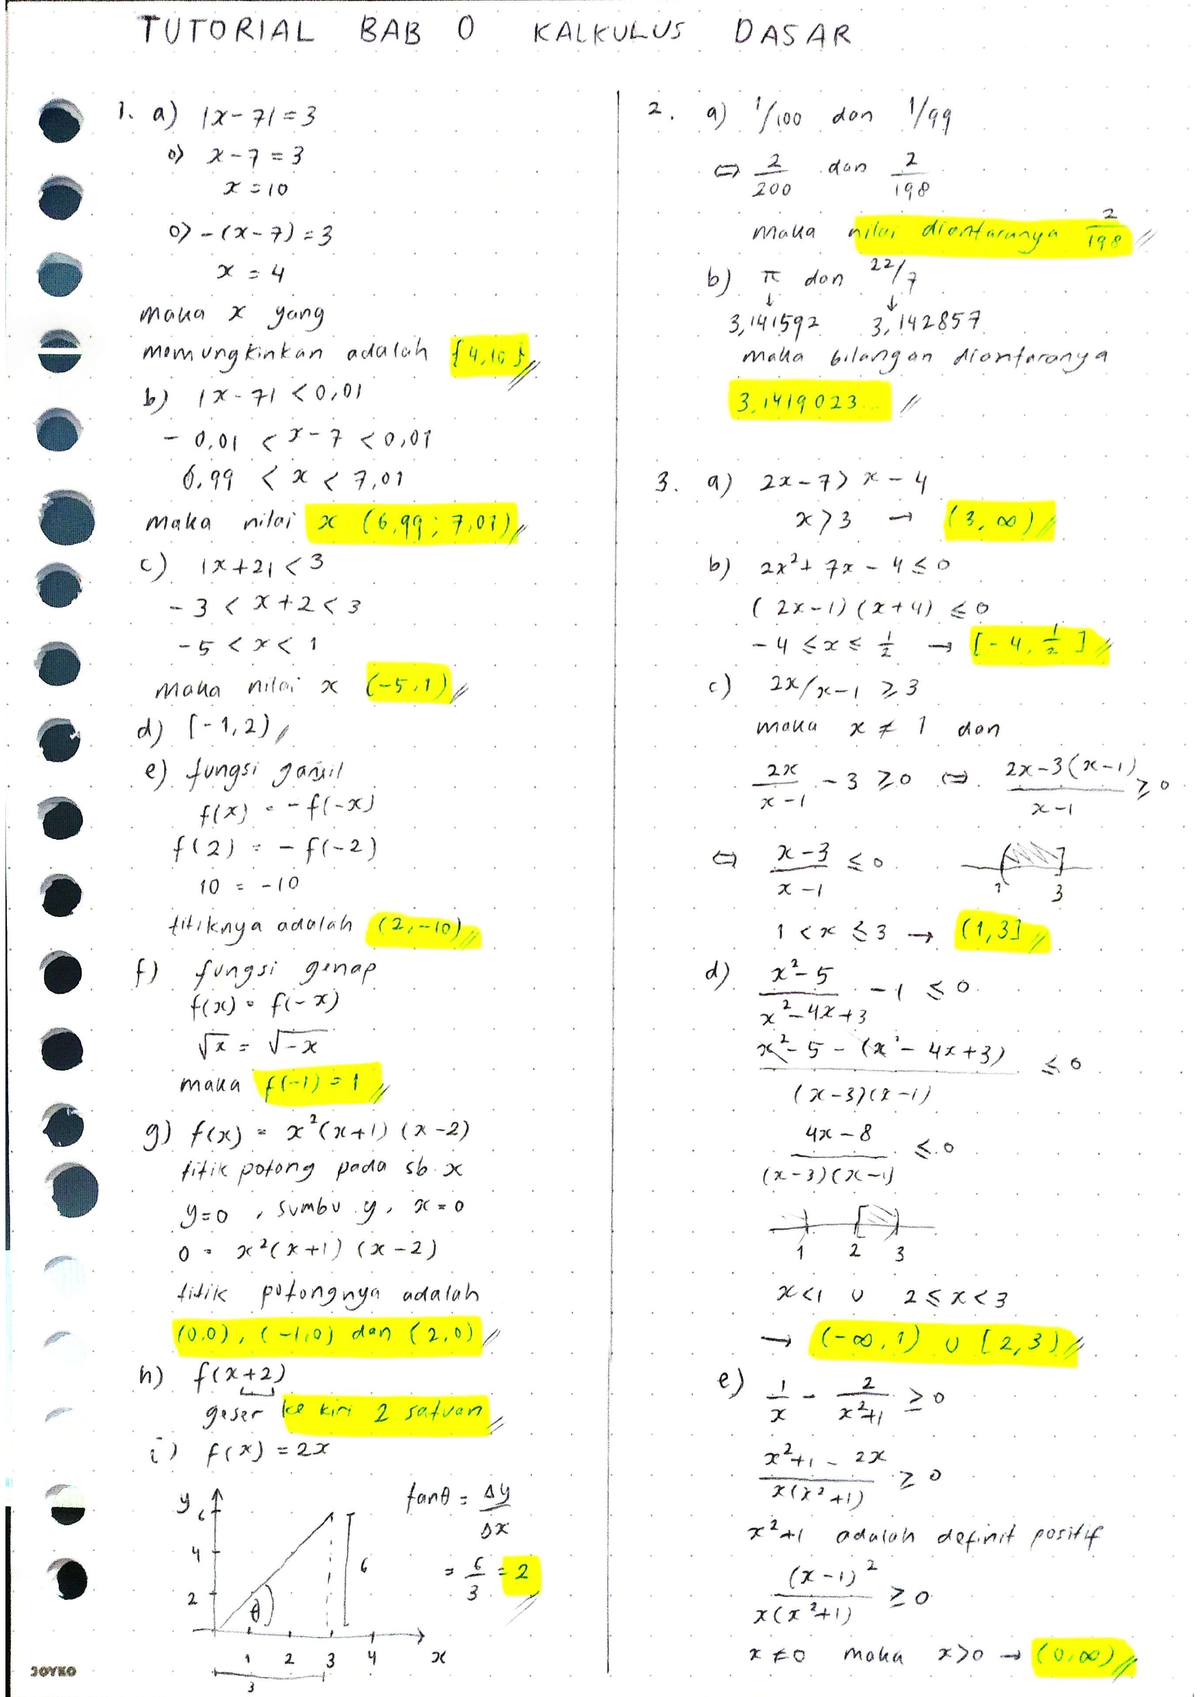 TUTORIAL BAB 0 KALKULUS DASAR
1. a) |x-7| = 3
o) x-7 = 3
x = 10
o) -(x-7) = 3
x = 4
maka x yang
memungkinkan adalah {4,10}
b) |x-7| < 0,01
- 0,01 < x-7 < 0,01
6,99 < x < 7,01
maka nilai x (6,99 ; 7,01)
c) |x+2| < 3
-3 < x+2 < 3
-5 < x < 1
maka nilai x (-5,1)
d) [-1,2)
e) fungsi ganjil
f(x) = -f(-x)
f(2) = -f(-2)
10 = -10
titiknya adalah (2,-10)
f) fungsi genap
f(x) = f(-x)
√x = √-x
maka f(-1) = 1
g) f(x) = x²(x+1)(x-2)
titik potong pada sb. x
y=0, sumbu y, x=0
0 = x²(x+1)(x-2)
titik potongnya adalah
(0,0), (-1,0) dan (2,0)
h) f(x+2)
geser ke kiri 2 satuan
i) f(x) = 2x
y 6 4 2
θ
6
1 2 3 4 x
3
tanθ = Δy/Δx
= 6/3 = 2
JOYKO
2. a) 1/100 dan 1/99
⇔ 2/200 dan 2/198
maka nilai diantaranya 2/198
b) π dan 22/7
↓ ↓
3,141592 3,142857
maka bilangan diantaranya
3,1419023...
3. a) 2x-7 > x-4
x > 3 → (3,∞)
b) 2x²+7x-4 ≤ 0
(2x-1)(x+4) ≤ 0
-4 ≤ x ≤ 1/2 → [-4, 1/2]
c) 2x/x-1 ≥ 3
maka x ≠ 1 dan
2x/x-1 - 3 ≥ 0 ⇔ 2x-3(x-1)/x-1 ≥ 0
⇔ x-3/x-1 ≤ 0
1 3
1 < x ≤ 3 → (1,3]
d) x²-5/x²-4x+3 - 1 ≤ 0
x²-5-(x²-4x+3)/(x-3)(x-1) ≤ 0
4x-8/(x-3)(x-1) ≤ 0
1 2 3
x<1 ∪ 2≤x<3
→ (-∞,1) ∪ [2,3)
e) 1/x - 2/x²+1 ≥ 0
x²+1-2x/x(x²+1) ≥ 0
x²+1 adalah definit positif
(x-1)²/x(x²+1) ≥ 0
x≠0 maka x>0 → (0,∞)